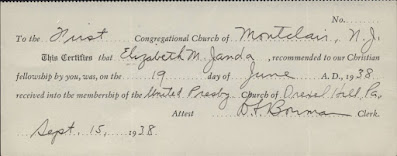 No.
To the First Congregational Church of Montclair, N.J.
This Certifies that Elizabeth M. Janda, recommended to our Christian
fellowship by you, was, on the 19 day of June A. D., 1938
received into the membership of the United Presby. Church of Drexel Hill, Pa.
Attest D.F. Bowman Clerk.
Sept. 15, 1938.